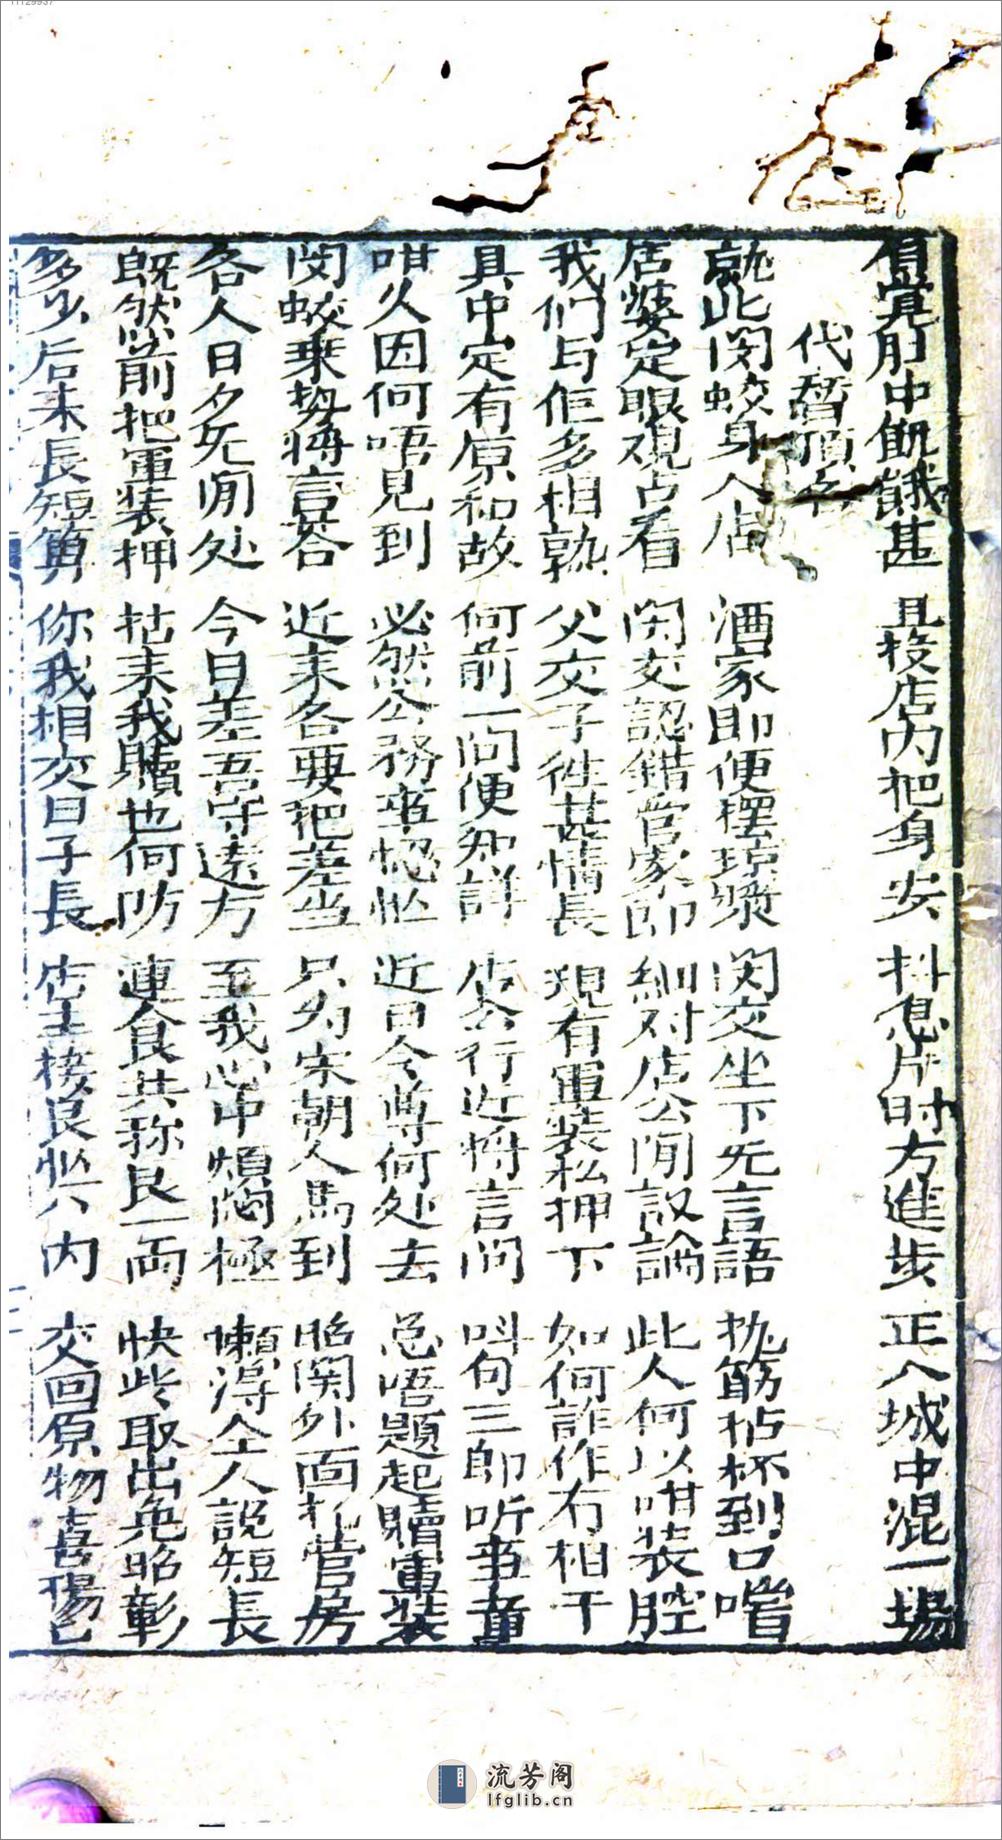 肚中飢餓甚 且投店內把身安 抖息片时方進步 正入城中混一場
代晉領兵
就此閔蛟身入店 酒家即便摆琼漿 閔交坐下旡言語 拋筯拈杯到口嚐
店婆定眼观占看 閔交認錯官家郎 細对店公閒説論 此人何以咁装腔
我们与佢多相熟 父交子徃甚情長 現有軍装私押下 如何詐作冇相干
其中定有原和故 何前一问便知詳 店公行近将言问 叫句三郎听事童
咁久因何唔見到 必然公務事怱忙 近日令尊何处去 总唔題起贖軍装
閔蛟乗势将言荅 近来各要把差当 只为宋朝人馬到 昭関外面扎营房
各人日夕旡閒处 今日差吾守遠方 至我心中煩悶極 懶得仝人説短長
既然前把軍装押 拈来我贖也何防 連食共称良一両 快些取出免昭彰
多少后来長短算 你我相交日子長 店主接良忙入內 交回原物喜揚已
流芳阁
lfglib.cn